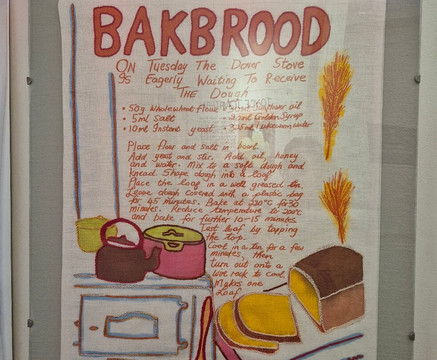 BAKBROOD
ON Tuesday The Dover Stove
Is Eagerly Waiting To Receive
THE Dough
• 50g Wholewheat flour • sunflower oil
• 5ml Salt • Golden Syrup
• 10ml Instant yeast • lukewarm water
Place flour and salt in bowl
Add yeast and stir. Add oil, honey
and water. Mix to a soft dough and
knead. Shape dough into a loaf
Place the loaf in a well greased tin.
Leave dough covered with a plastic bag
for 45 minutes. Bake at 220°C for 30
minutes. Reduce temperature to 200°C
and bake for further 10-15 minutes
Test loaf by tapping
the top.
Cool in a tin for a few
minutes, then
turn out onto a
wire rack to cool.
Makes one
Loaf